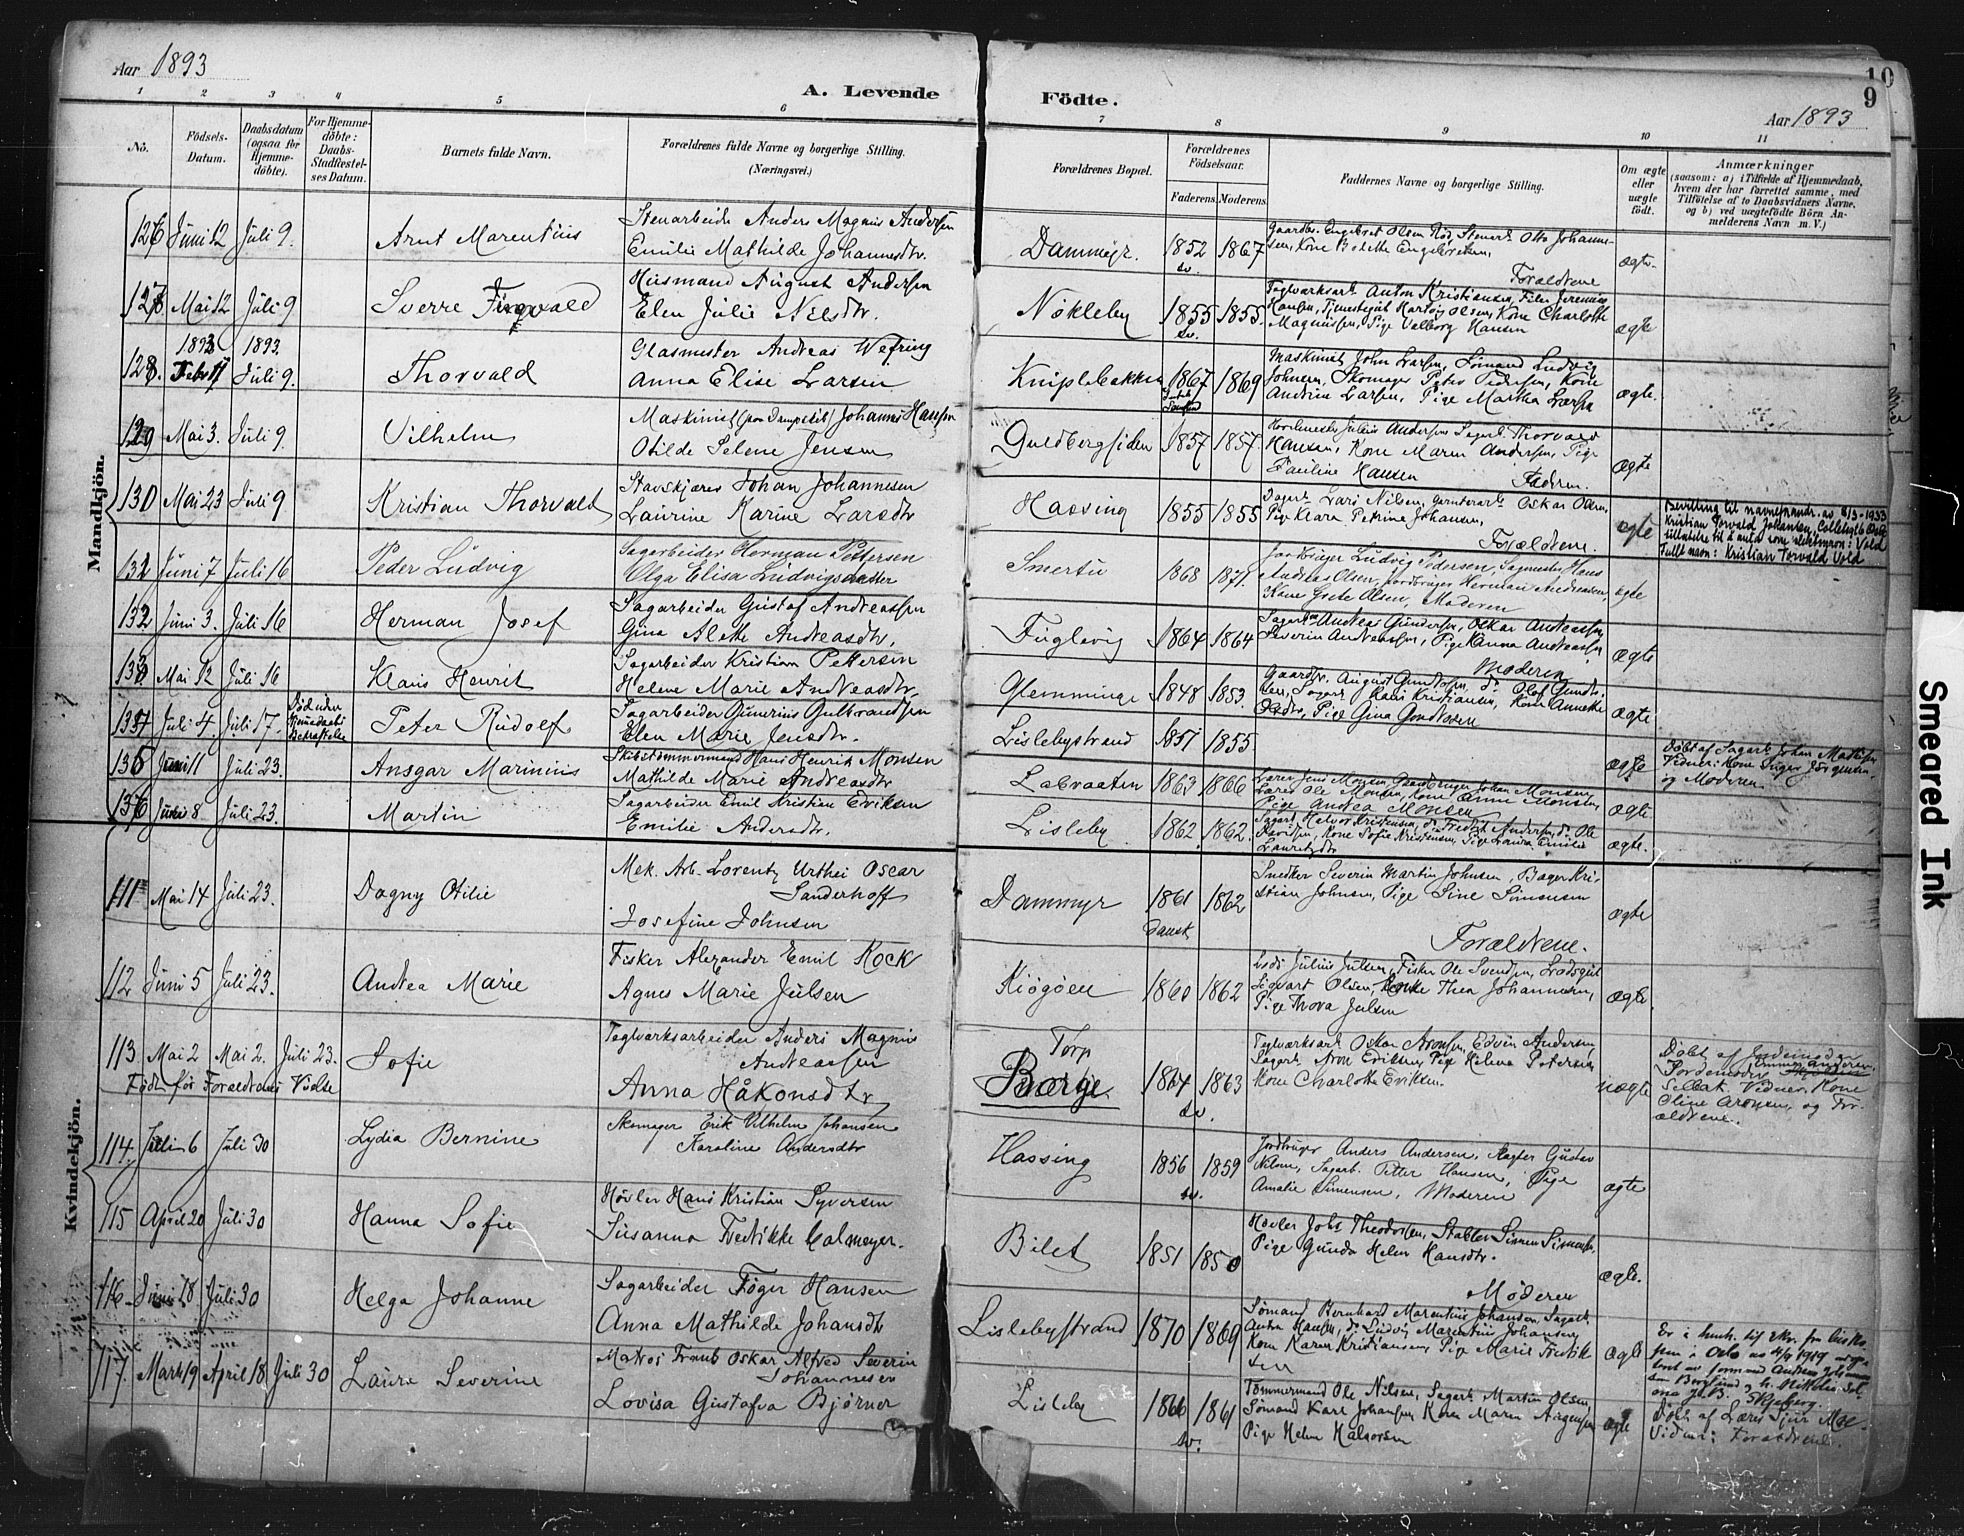 Aar 1893
A. Levende Födte.
10
9
Aar 1893
1 2 3 4 5 6 7 8 9 10 11
Nö.
Födsels-Datum.
Daabsdatum (ogsaa for Hjemme-döbte).
For Hjemme-döbte: Daabs-Stadfæstel-ses Datum.
Barnets fulde Navn.
Forældrenes fulde Navne og borgerlige Stilling. (Næringsvei.)
Forældrenes Bopæl.
Forældrenes Födselsaar.
Faderens. Moderens.
Faddernes Navne og borgerlige Stilling.
Om ægte eller uægte födt.
Anmærkninger
(saasom: a) i Tilfælde af Hjemmedaab, hvem der har forrettet samme, med Tilföielse af to Daabsvidners Navne. og b) ved uægtefödte Börn An-melderens Navn m. V.)
Mandkjön.
126 Juni 12 Juli 9. Arnt Marentius
Stenarbeider Anders Magnus Andersen
Emilie Mathilde Johannesdtr.
Dammyr. 1852 sv. 1867
Gaardbr. Engebret Olsen Röd, Stenarb. Otto Johanne-
sen, Kone Bolette Engebretsen,
Forældrene
ægte.
127 Mai 12 Juli 9 Sverre Tingvald
Husmand August Andersen
Elen Julie Nilsdtr.
Nökleby 1855 sv. 1855
Teglværksarb. Anton Kristiansen,
Hansen, Tjenestegut Hartvig Olsen, Kone Charlotte
Magnussen, Pige Valborg Hansen
ægte
1893 1893.
128. Febr 17 Juli 9. Thorvald
Glasmester Andreas Wefring
Anna Elise Larsen
Kniplebakken 1867 1869
Maskinist John Larsen, Sömand Ludvig
Johnsen, Skomager Peter Pedersen, Kone
Andrine Larsen, Pige Martha Larsen
ægte.
129 Mai 3. Juli 9. Vilhelm
Maskinist (paa Dampskib) Johannes Hansen
Otilde Selene Jensen
Guldbergsiden 1857 1857.
Julius Andersen Sagarb. Thorvald
Hansen, Kone Maren Andersen, Pige
Pauline Hansen Faderen.
ægte
130 Mai 23 Juli 9 Kristian Thorvald
Stavskjærer Johan Johannesen
Laurine Karine Larsdtr
Hassing 1855 1855
Lars Nilsen, Oskar Olsen,
Pige Klara Petrine Johansen,
Forældrene.
ægte
Bevilling til navneforandr. av 8/3-1933
Kristian Torvald Johansen,
tillatelse til å anta som slektsnavn: Vold
Fullt navn: Kristian Torvald Vold
132 Juni 7 Juli 16 Peder Ludvig
Sagarbeider Herman Pettersen
Olga Elisa Ludvigsdatter
Smertu 1868 1871.
Jordbruger Ludvig Pedersen, Sagmester Hans
Andreas Olsen, Jordbruger Herman Andreasen,
Kone Grete Olsen, Moderen
ægte
132 Juni 3. Juli 16 Herman Josef
Sagarbeider Gustaf Andreassen
Gina Alette Andreasdtr,
Fuglevig 1864 1864
Sagarb. Andreas Gundersen, Oskar Andreassen,
Severin Andreassen, Pige Kanna Andreassen,
Moderen
ægte
133. Mai 12 Juli 16 Klaus Henrik
Sagarbeider Kristian Pettersen
Helene Marie Andreasdtr.
Glemminge 1848 1853.
Gaardbr. August Gundersen, do Olaf Gunder-
sen, Sagarb. Hans Kristiansen, Kone Annette
Pige Gina Gundersen
ægte
134 Juli 4. Juli 17. Död uden Hjemmedaabs Bekræftelse Peter Rudolf
Sagarbeider Gunerius Gulbrandsen
Elen Marie Jensdtr.
Lislebystrand 1851 1855
ægte
Döbt af Sagarb. Johan Mathisen
Vidner: Kone Inger Jörgensen
og Moderen.
135 Juni 11 Juli 23. Ansgar Marinius
Skibstömmermand Hans Henrik Monsen
Mathilde Marie Andreasdtr
Labraaten 1863 1866
Lærer Jens Monsen, Gaardbruger Johan Monsen,
Lærer Ole Monsen, Kone Anne Monsen,
Pige Andrea Monsen
ægte
136 Juni 8 Juli 23. Martin
Sagarbeider Emil Kristian Eriksen
Emilie Andersdtr.
Lisleby 1862. 1862.
Sagarb. Halvor Kristensen, do Fredrik Andersen, do Ole
Davidsen, Kone Sofie Kristensen, Pige Laura Emilie
Lauritzdtr
ægte.
Kvindekjön.
111 Mai 14 Juli 23. Dagny Otilie
Mek. Arb. Lorentz Urthei Oscar
Sanderhoff
Josefine Johnsen
Dammyr 1861 Dansk 1862
Snedker Severin Martin Johnsen, Bager Kri-
stian Johnsen, Pige Sine Simensen
Forældrene.
ægte
112 Juni 5 Juli 23. Andrea Marie
Fisker Alexander Emil Kock
Agnes Marie Julsen
Kiögöen 1860 1862
Lods Julius Julsen, Fisker Ole Svendsen, Lodsgut
Sigvart Olsen, Enke Thea Johannesen,
Pige Thora Julsen
ægte
113. Mai 2 Mai 2. Juli 23. Sofie
Födt för Forældrenes Vielse
Teglværksarbeider Anders Magnus
Andreassen
Anna Håkonsdtr
Torp
Borge. 1864 sv. 1863
Teglværksarb. Oskar Aronsen, Edvin Andersen,
Sagarb. Aron Eriksen, Pige Helene Petersen,
Kone Charlotte Eriksen.
uægte
Döbt af Jordemoder
Selbak. Vidner, Kone
Oline Aronsen, og For-
ældrene.
114. Juli 6 Juli 30 Lydia Bernine
Skomager Erik Vilhelm Johansen
Karoline Andersdtr
Hassing 1856 sv. 1859
Jordbruger Anders Andersen, Gustav
Nilsen, Sagarb. Petter Hansen, Pige
Amalie Simensen, Moderen
ægte
115 April 20 Juli 30 Hanna Sofie
Hövler Hans Kristian Syversen
Susanna Fredrikke Calmeyer.
Bilet 1851 1850
Hövler Johs Theodorsen, Stabler Simen Simensen,
Pige Gunda Helene Hansdtr.
Moderen
ægte.
116. Juni 18. Juli 30 Helga Johanne
Sagarbeider Föger Hansen
Anna Mathilde Johansdtr
Lislebystrand 1870 1869
Sömand Bernhard Marentius Johansen, Sagarb.
Anton Hansen, do Ludvig Marentius Johansen,
Kone Karen Kristiansen, Pige Marie Fredrik-
sen
ægte
117. Marts 19 April 18 Juli 30 Laura Severine
Matros Frants Oskar Alfred Severin
Johannesen
Lovisa Gustafva Björner
Lisleby 1866 sv. 1861
Tömmermand Ole Nilsen, Sagarb. Martin Olsen,
Sömand Karl Johansen, Kone Maren Jörgensen
Pige Helene Halvorsen
ægte
Skjeberg.
Döbt af Lærer Sjur Moe
Vidner: Forældrene.
Smeared Ink